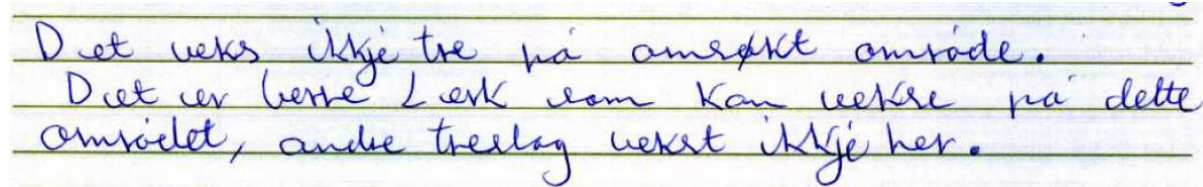 Det veks ikkje tre på omsøkt område.
Det er berre Lerk som kan vekse på dette
området, andre treslag vekst ikkje her.